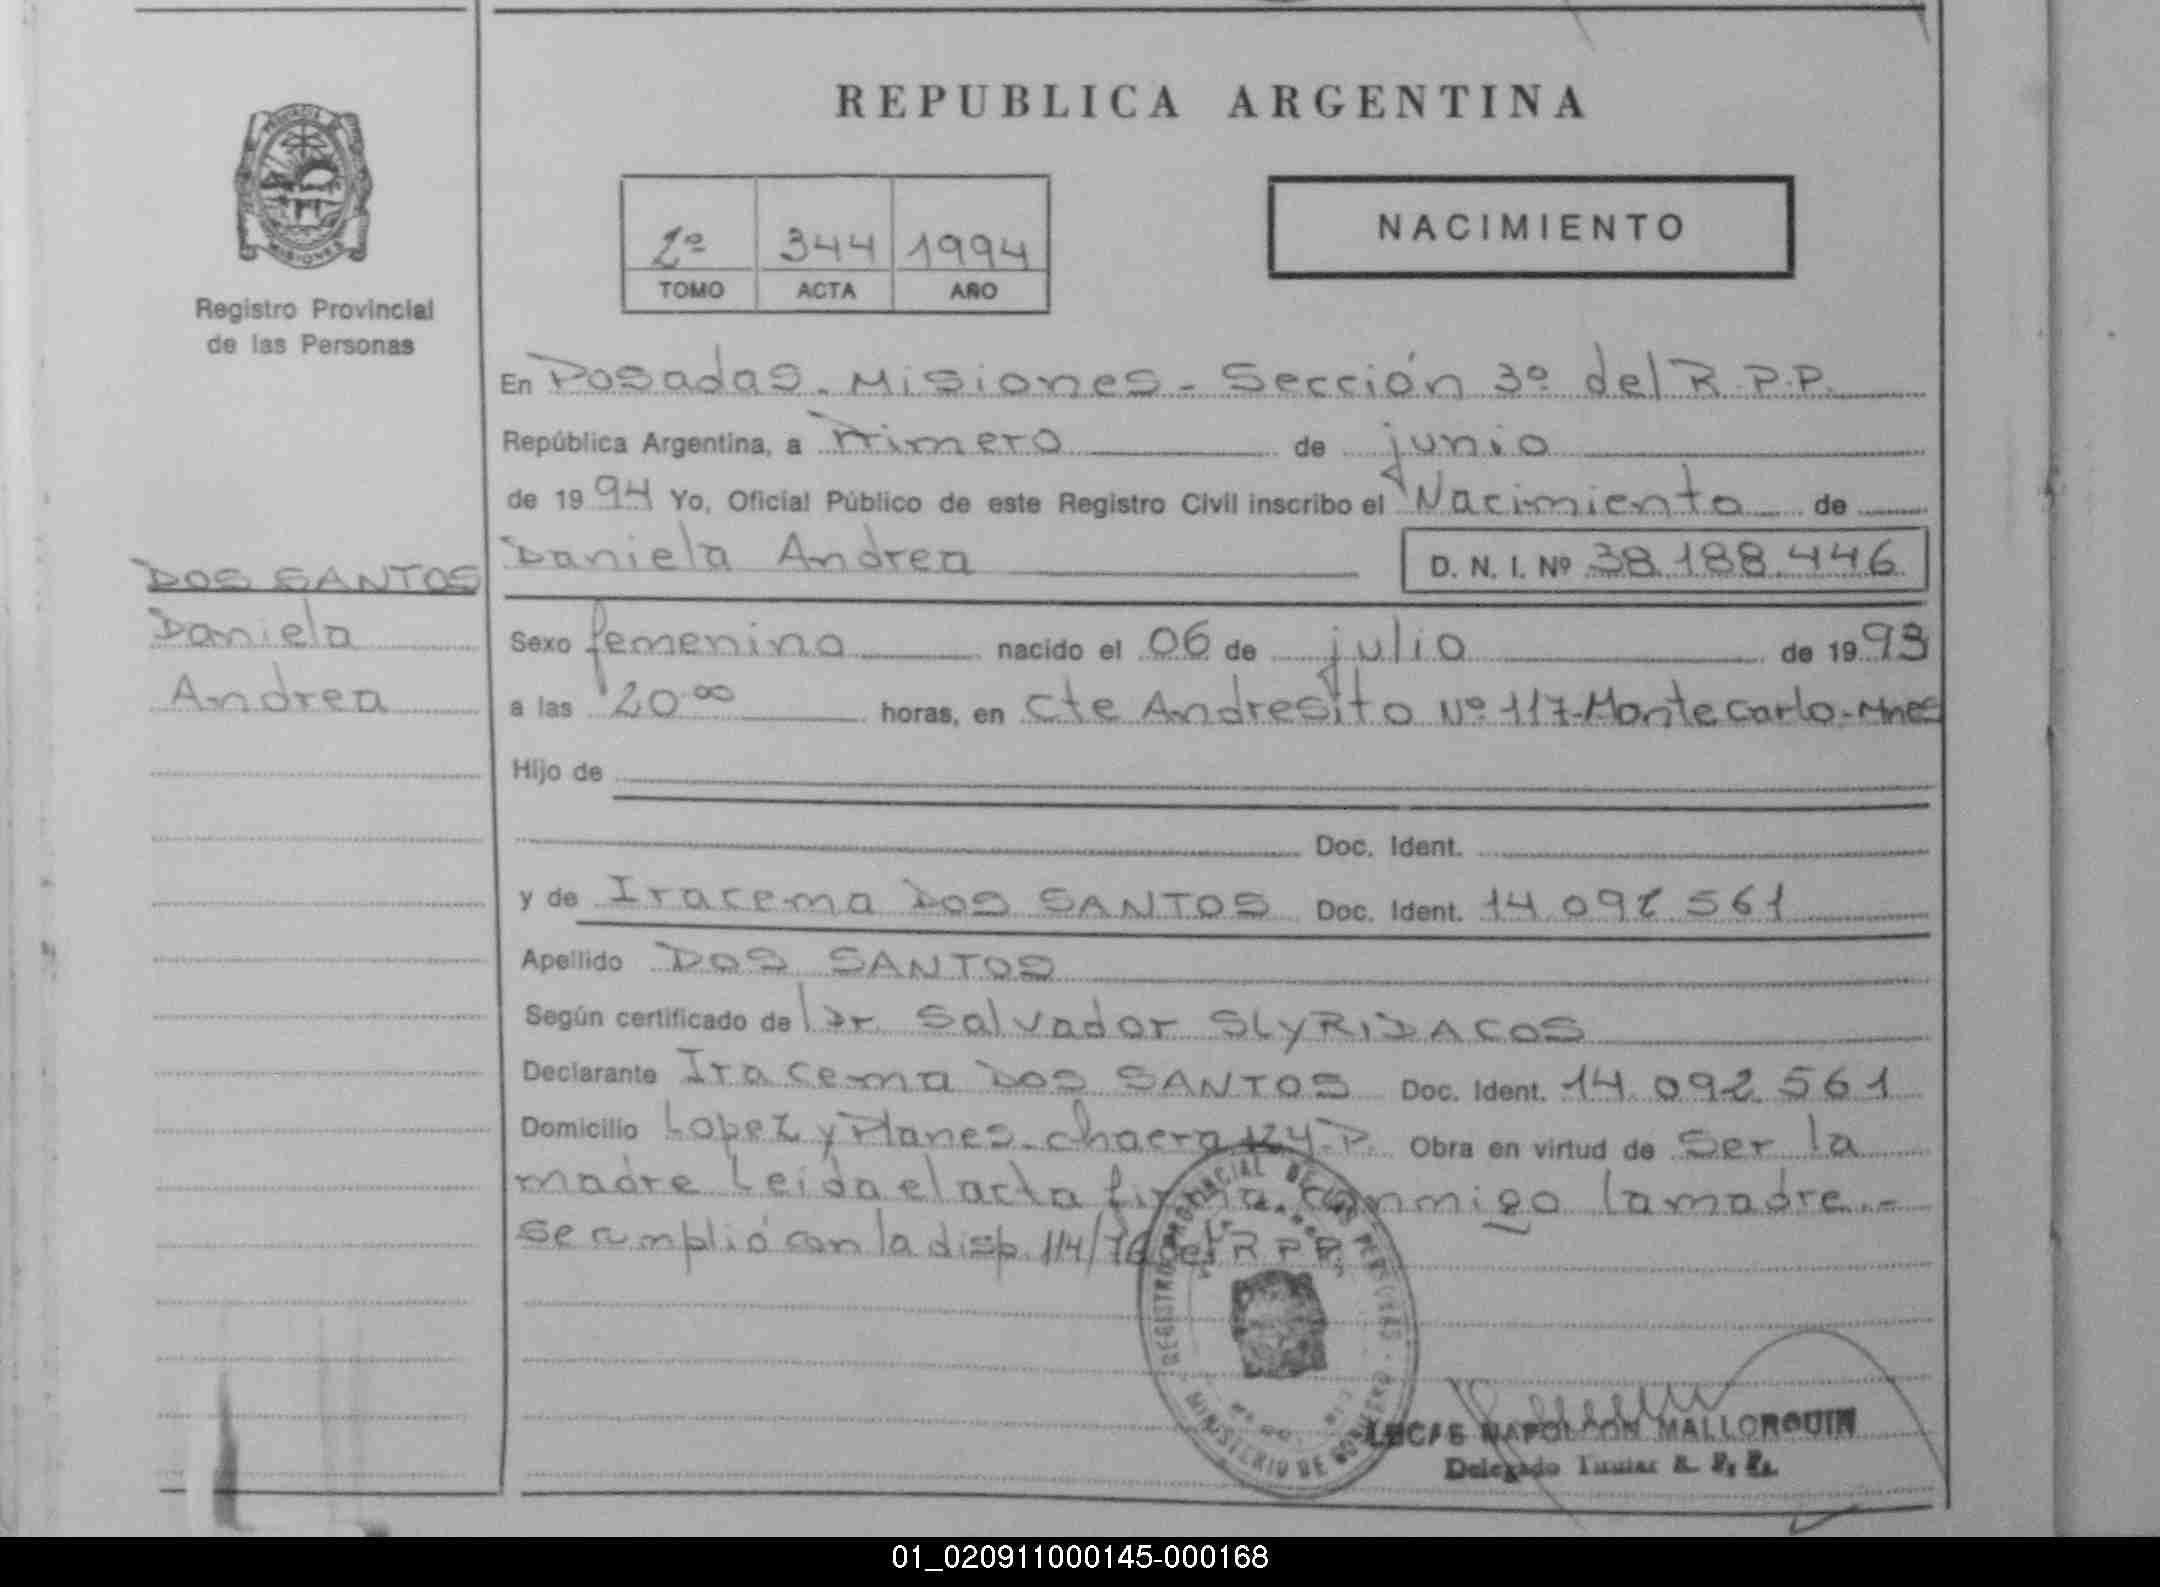 REPUBLICA ARGENTINA
PROVINCIA DE MISIONES
Registro Provincial
de las Personas
2º 344 1994
TOMO ACTA AÑO
NACIMIENTO
En Posadas - Misiones - Sección 3º del R.P.P.
República Argentina, a Primero de junio
de 1994 Yo, Oficial Público de este Registro Civil inscribo el Nacimiento de
Daniela Andrea D. N. I. Nº 38.188.446
DOS SANTOS
Daniela
Andrea
Sexo femenino nacido el 06 de julio de 1993
a las 20.00 horas, en Cte Andresito Nº 117-Montecarlo-Mnes
Hijo de
Doc. Ident.
y de Iracema DOS SANTOS Doc. Ident. 14.092.561
Apellido DOS SANTOS
Según certificado de l Dr. Salvador SLYRIDACOS
Declarante Iracema DOS SANTOS Doc. Ident. 14.092.561
Domicilio Lopez y Planes - chacra P. Obra en virtud de ser la
madre Leída el acta firma conmigo la madre.-
Se cumplió con la disp. 114/76 del R.P.P.
REGISTRO PROVINCIAL DE LAS PERSONAS
MINISTERIO DE GOBIERNO
LUCAS NAPOLEON MALLORQUIN
Delegado Titular R. P. P.
01_020911000145-000168